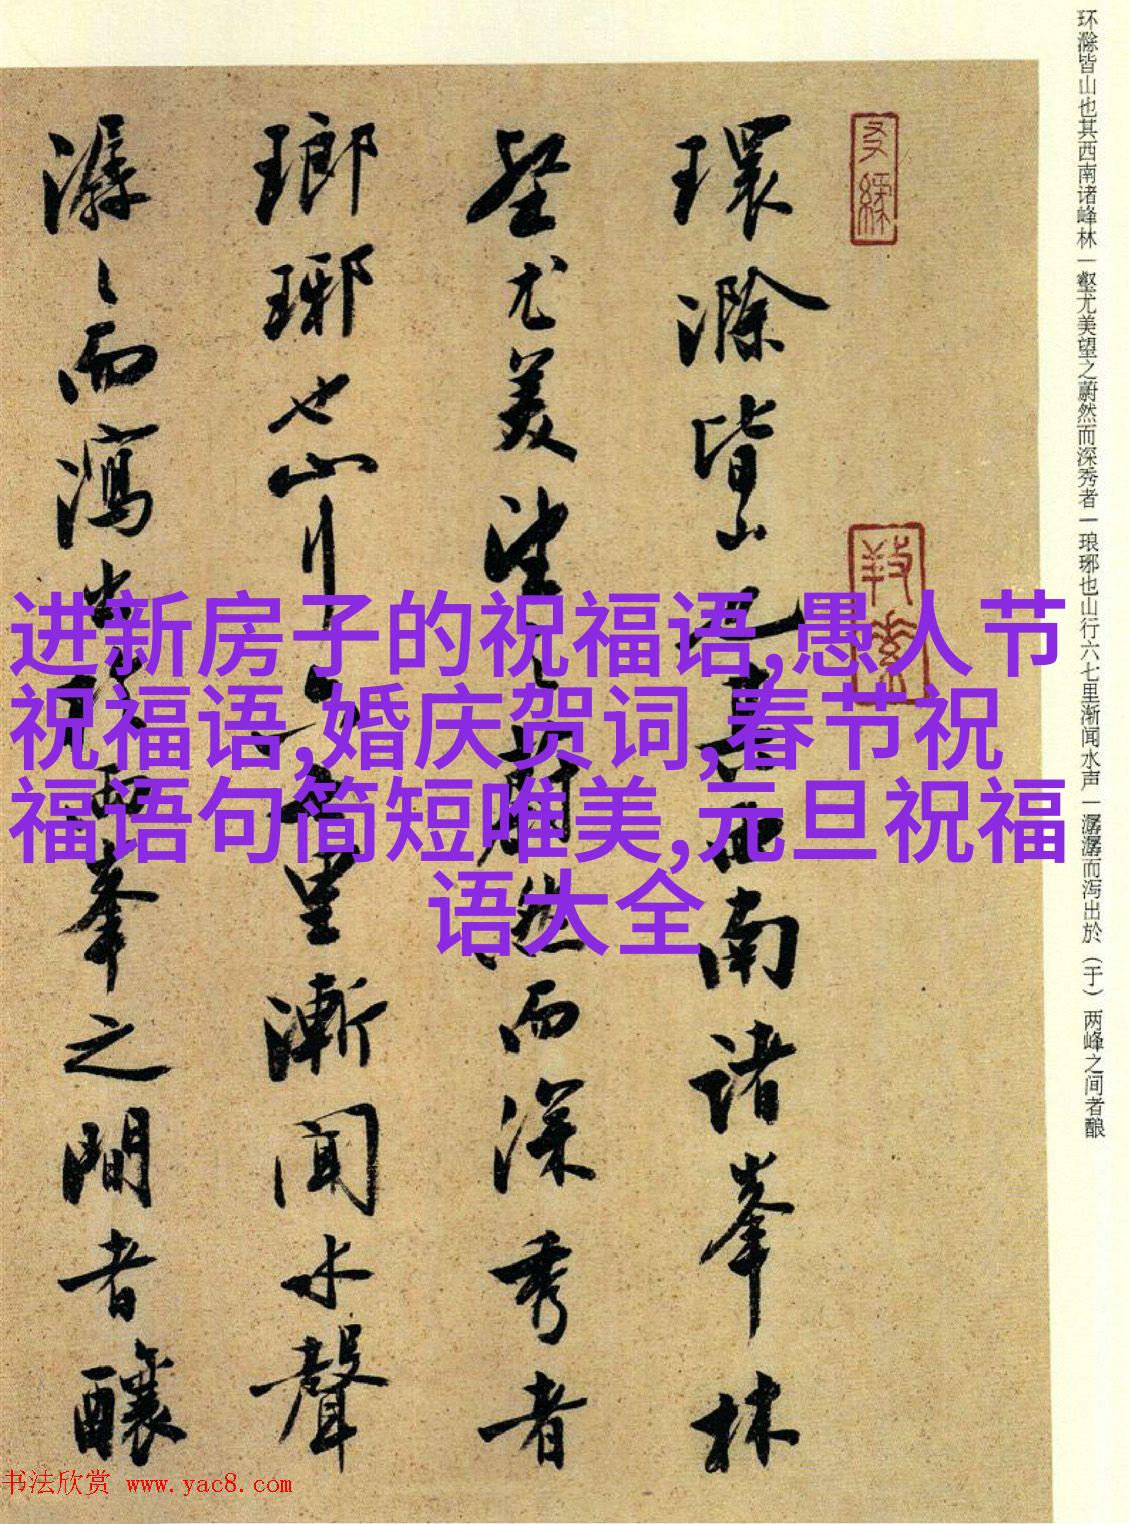 环滁皆山也其西南诸峰林一壑尤美望之蔚然而深秀者一琅琊也山行六七里渐闻水声一潺潺而泻出於（于）两峰之间者酿
環滁皆山也其西南諸峯林
壑尤美望之蔚然而深秀者
瑯琊也山行六七里漸聞水聲
潺〻而瀉出於兩峯之間者釀
进新房子的祝福语,愚人节
祝福语,婚庆贺词,春节祝
福语句简短唯美,元旦祝福
语大全
书法欣赏 www.yac8.com